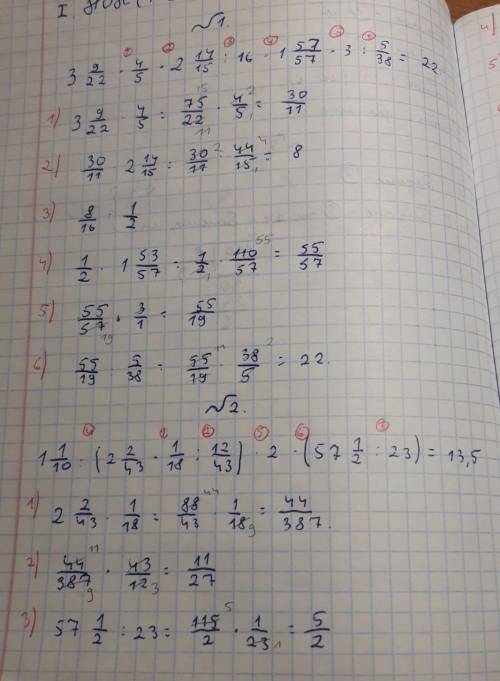 I.
№1.
3 9/22 · 4/5 · 2 14/15 : 16 · 1 57/57 · 3 : 5/38 = 22
1) 3 9/22 · 4/5 = 75/22 · 4/5 = 30/11
2) 30/11 · 2 14/15 = 30/11 · 44/15 = 8
3) 8/16 = 1/2
4) 1/2 · 1 53/57 = 1/2 · 110/57 = 55/57
5) 55/57 · 3/1 = 55/19
6) 55/19 : 5/38 = 55/19 · 38/5 = 22.
№2.
1 1/10 : (2 2/43 · 1/18 : 12/43) · 2 · (57 1/2 : 23) = 13,5
1) 2 2/43 · 1/18 = 88/43 · 1/18 = 44/387.
2) 44/387 · 43/12 = 11/27
3) 57 1/2 : 23 = 115/2 · 1/23 = 5/2